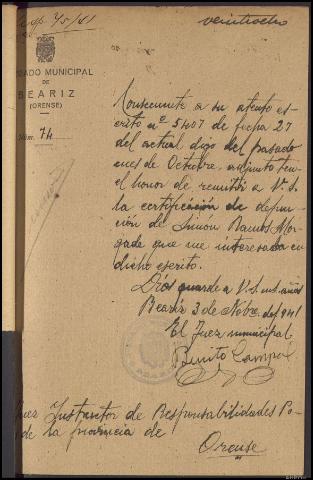 75/41
veintiocho
JUZGADO MUNICIPAL
DE
BEARIZ
(ORENSE)
Núm. 74
Consecuente a su atento es-
crito nº 5407 de fecha 27
del actual digo del pasado
mes de Octubre, adjunto ten-
el honor de remitir a V.S.
la certificación de defun-
ción de Simon Ramos Mor-
gade que me interesada en
dicho escrito.
Dios guarde a V.S. ms. años
Beariz 3 de Nobre. de 1941
El Juez municipal
Benito Campos
Juez Instructor de Responsabilidades Po-
de la provincia de
Orense